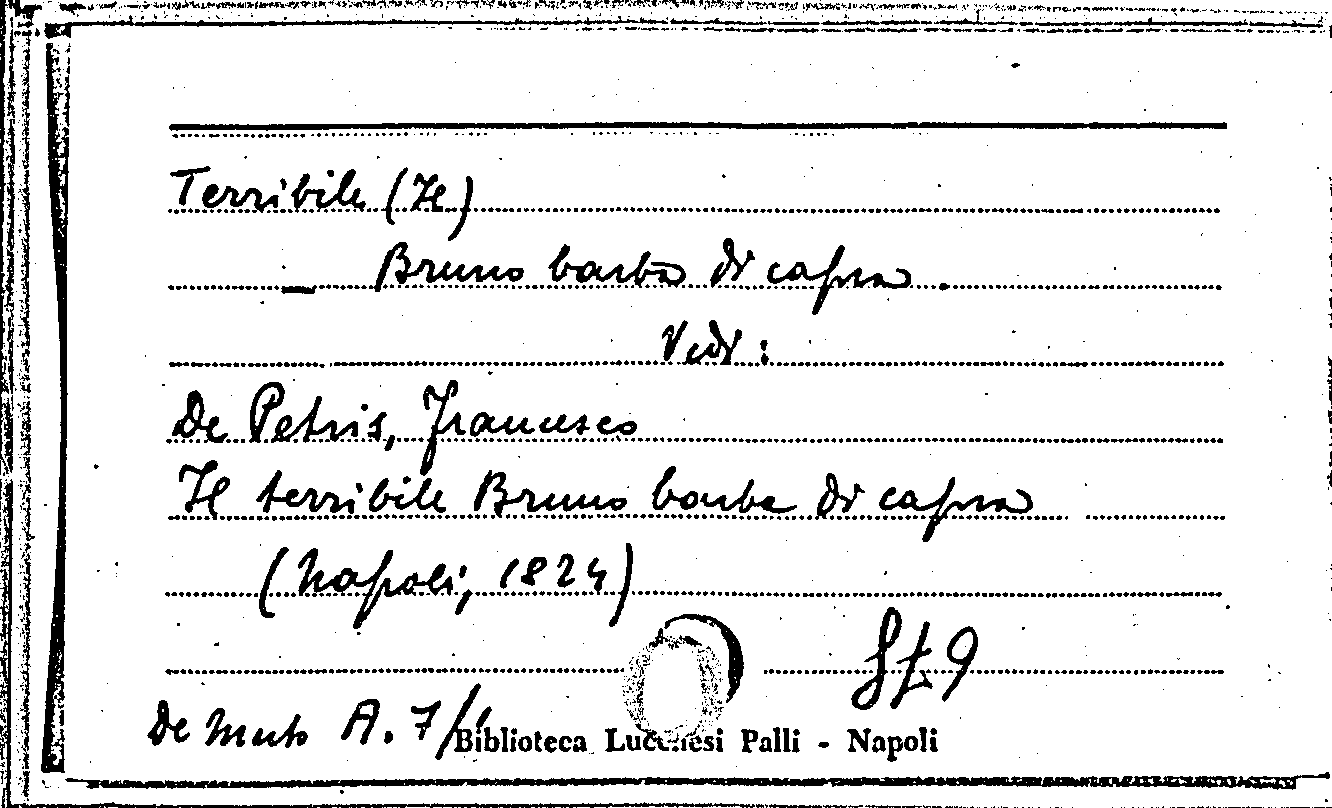 Terribile (Il)
_ Bruno barba di capra.
Vedi:
De Petris, Francesco
Il terribile Bruno barba di capra
(Napoli, 1824)
De Muto A. 7/
Biblioteca Lucchesi Palli - Napoli